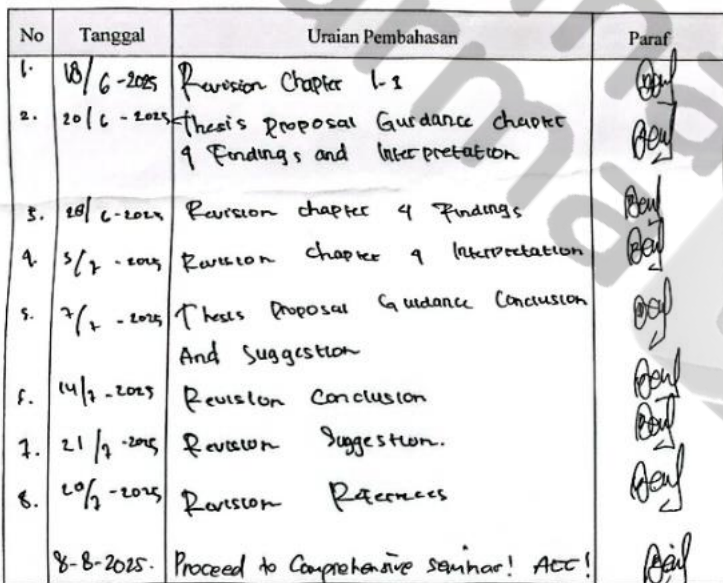 No Tanggal Uraian Pembahasan Paraf
1. 18/6-2025 Revision Chapter 1-3
2. 20/6-2025 Thesis Proposal Guidance chapter
4 Findings and Interpretation
3. 28/6-2025 Revision chapter 4 Findings
4. 5/7-2025 Revision chapter 4 Interpretation
5. 7/7-2025 Thesis Proposal Guidance Conclusion
And Suggestion
6. 14/7-2025 Revision Conclusion
7. 21/7-2025 Revision Suggestion.
8. /7-2025 Revision References
8-8-2025. Proceed to Comprehensive seminar! ACC!